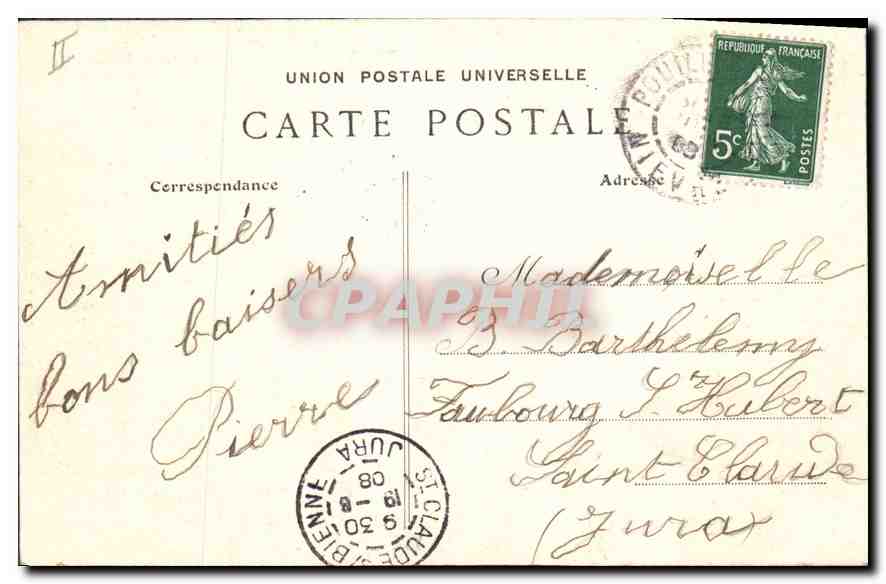 II
UNION POSTALE UNIVERSELLE
CARTE POSTALE
Correspondance
Adresse
REPUBLIQUE FRANÇAISE
5c
POSTES
NIEV
08
Amitiés
bons baisers
Pierre
Mademoiselle
B. Barthélemy
Faubourg St Hubert
Saint Claude
(Jura)
CPAPHIL
ST CLAUDE S/ BIENNE
9 30
19 - 8
08
JURA